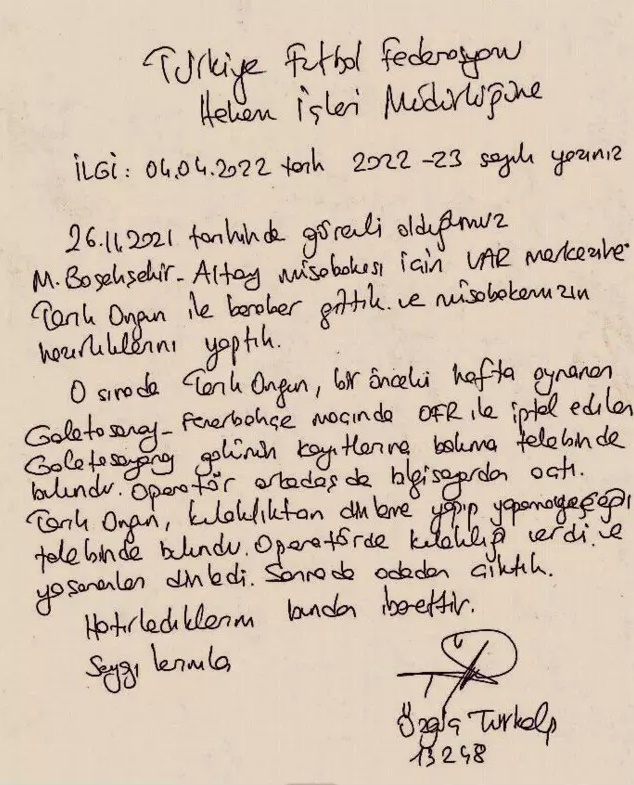 Türkiye Futbol Federasyonu
Hakem İşleri Müdürlüğüne
İLGİ: 04.04.2022 tarih 2022-23 sayılı yazınız
26.11.2021 tarihinde görevli olduğumuz
M. Başakşehir - Altay müsabakası için VAR merkezine
Tarık Ongun ile beraber gittik ve müsabakamızın
hazırlıklarını yaptık.
O sırada Tarık Ongun, bir önceki hafta oynanan
Galatasaray - Fenerbahçe maçında OFR ile iptal edilen
Galatasaray golünün kayıtlarına bakma talebinde
bulundu. Operatör arkadaş da bilgisayardan açtı.
Tarık Ongun, kulaklıktan dinleme yapıp yapamayacağı
talebinde bulundu. Operatörde kulaklığı verdi ve
yaşananları dinledi. Sonra da odadan çıktık.
Hatırladıklarım bundan ibarettir.
Saygılarımla
Özgüç Türkalp
13248